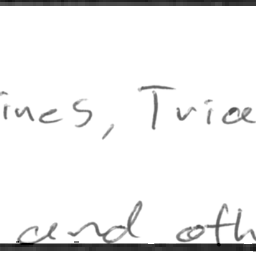 ines, Tria
and oth